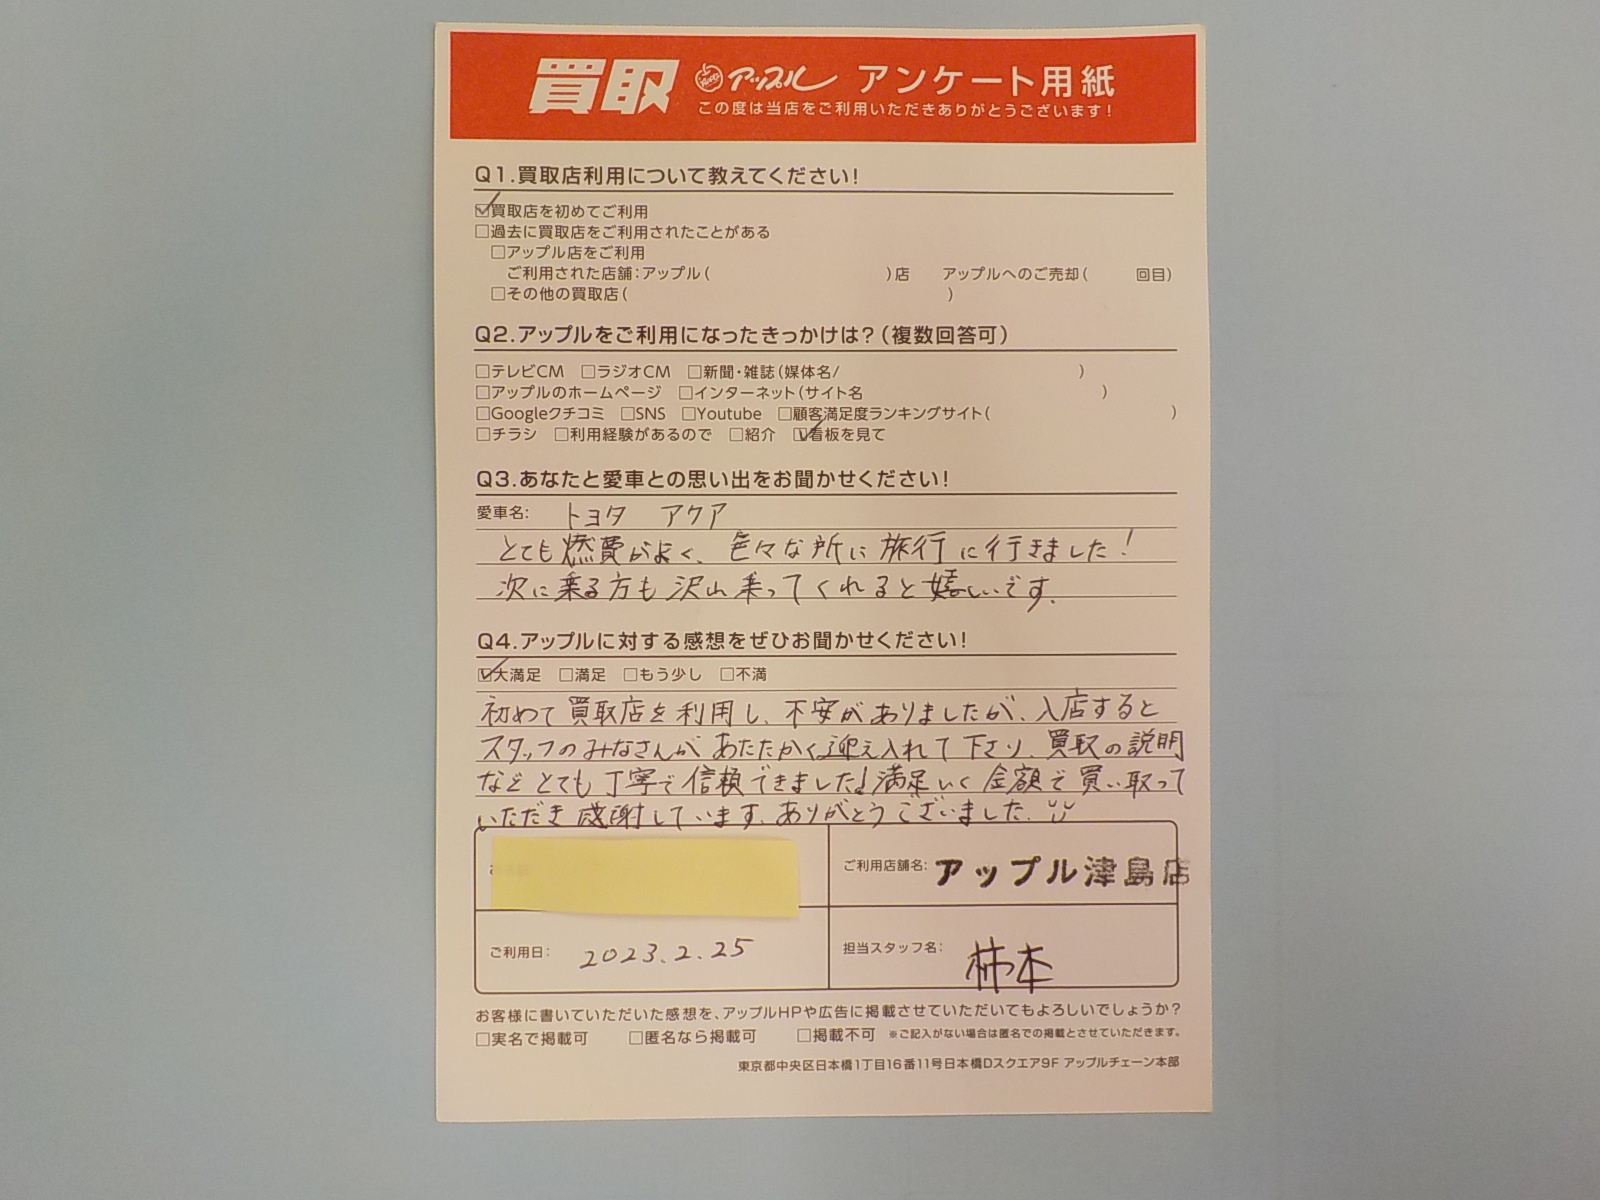 買取 アップル アンケート用紙
この度は当店をご利用いただきありがとうございます!
Q1.買取店利用について教えてください!
☑買取店を初めてご利用
□過去に買取店をご利用されたことがある
□アップル店をご利用
ご利用された店舗:アップル( )店 アップルへのご売却( 回目)
□その他の買取店( )
Q2.アップルをご利用になったきっかけは?(複数回答可)
□テレビCM □ラジオCM □新聞・雑誌(媒体名/ )
□アップルのホームページ □インターネット(サイト名 )
□Googleクチコミ □SNS □Youtube □顧客満足度ランキングサイト( )
□チラシ □利用経験があるので □紹介 ☑看板を見て
Q3.あなたと愛車との思い出をお聞かせください!
愛車名: トヨタ アクア
とても燃費がよく、色々な所に旅行に行きました!
次に乗る方も沢山乗ってくれると嬉しいです.
Q4.アップルに対する感想をぜひお聞かせください!
☑大満足 □満足 □もう少し □不満
初めて買取店を利用し、不安がありましたが、入店すると
スタッフのみなさんがあたたかく迎え入れて下さり、買取の説明
などとても丁寧で信頼できました!満足いく金額で買い取って
いただき感謝しています。ありがとうございました.
ご利用店舗名: アップル津島店
ご利用日: 2023.2.25
担当スタッフ名: 柿本
お客様に書いていただいた感想を、アップルHPや広告に掲載させていただいてもよろしいでしょうか?
□実名で掲載可 □匿名なら掲載可 □掲載不可 ※ご記入がない場合は匿名での掲載とさせていただきます。
東京都中央区日本橋1丁目16番11号日本橋Dスクエア9F アップルチェーン本部